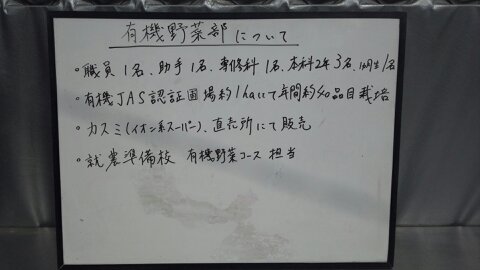 有機野菜部について
・職員1名、助手1名、専修科1名、本科2年3名、1年生1名
・有機JAS認証圃場約1haにて年間約40品目栽培
・カスミ(イオン系スーパー)、直売所にて販売
・就農準備校 有機野菜コース 担当